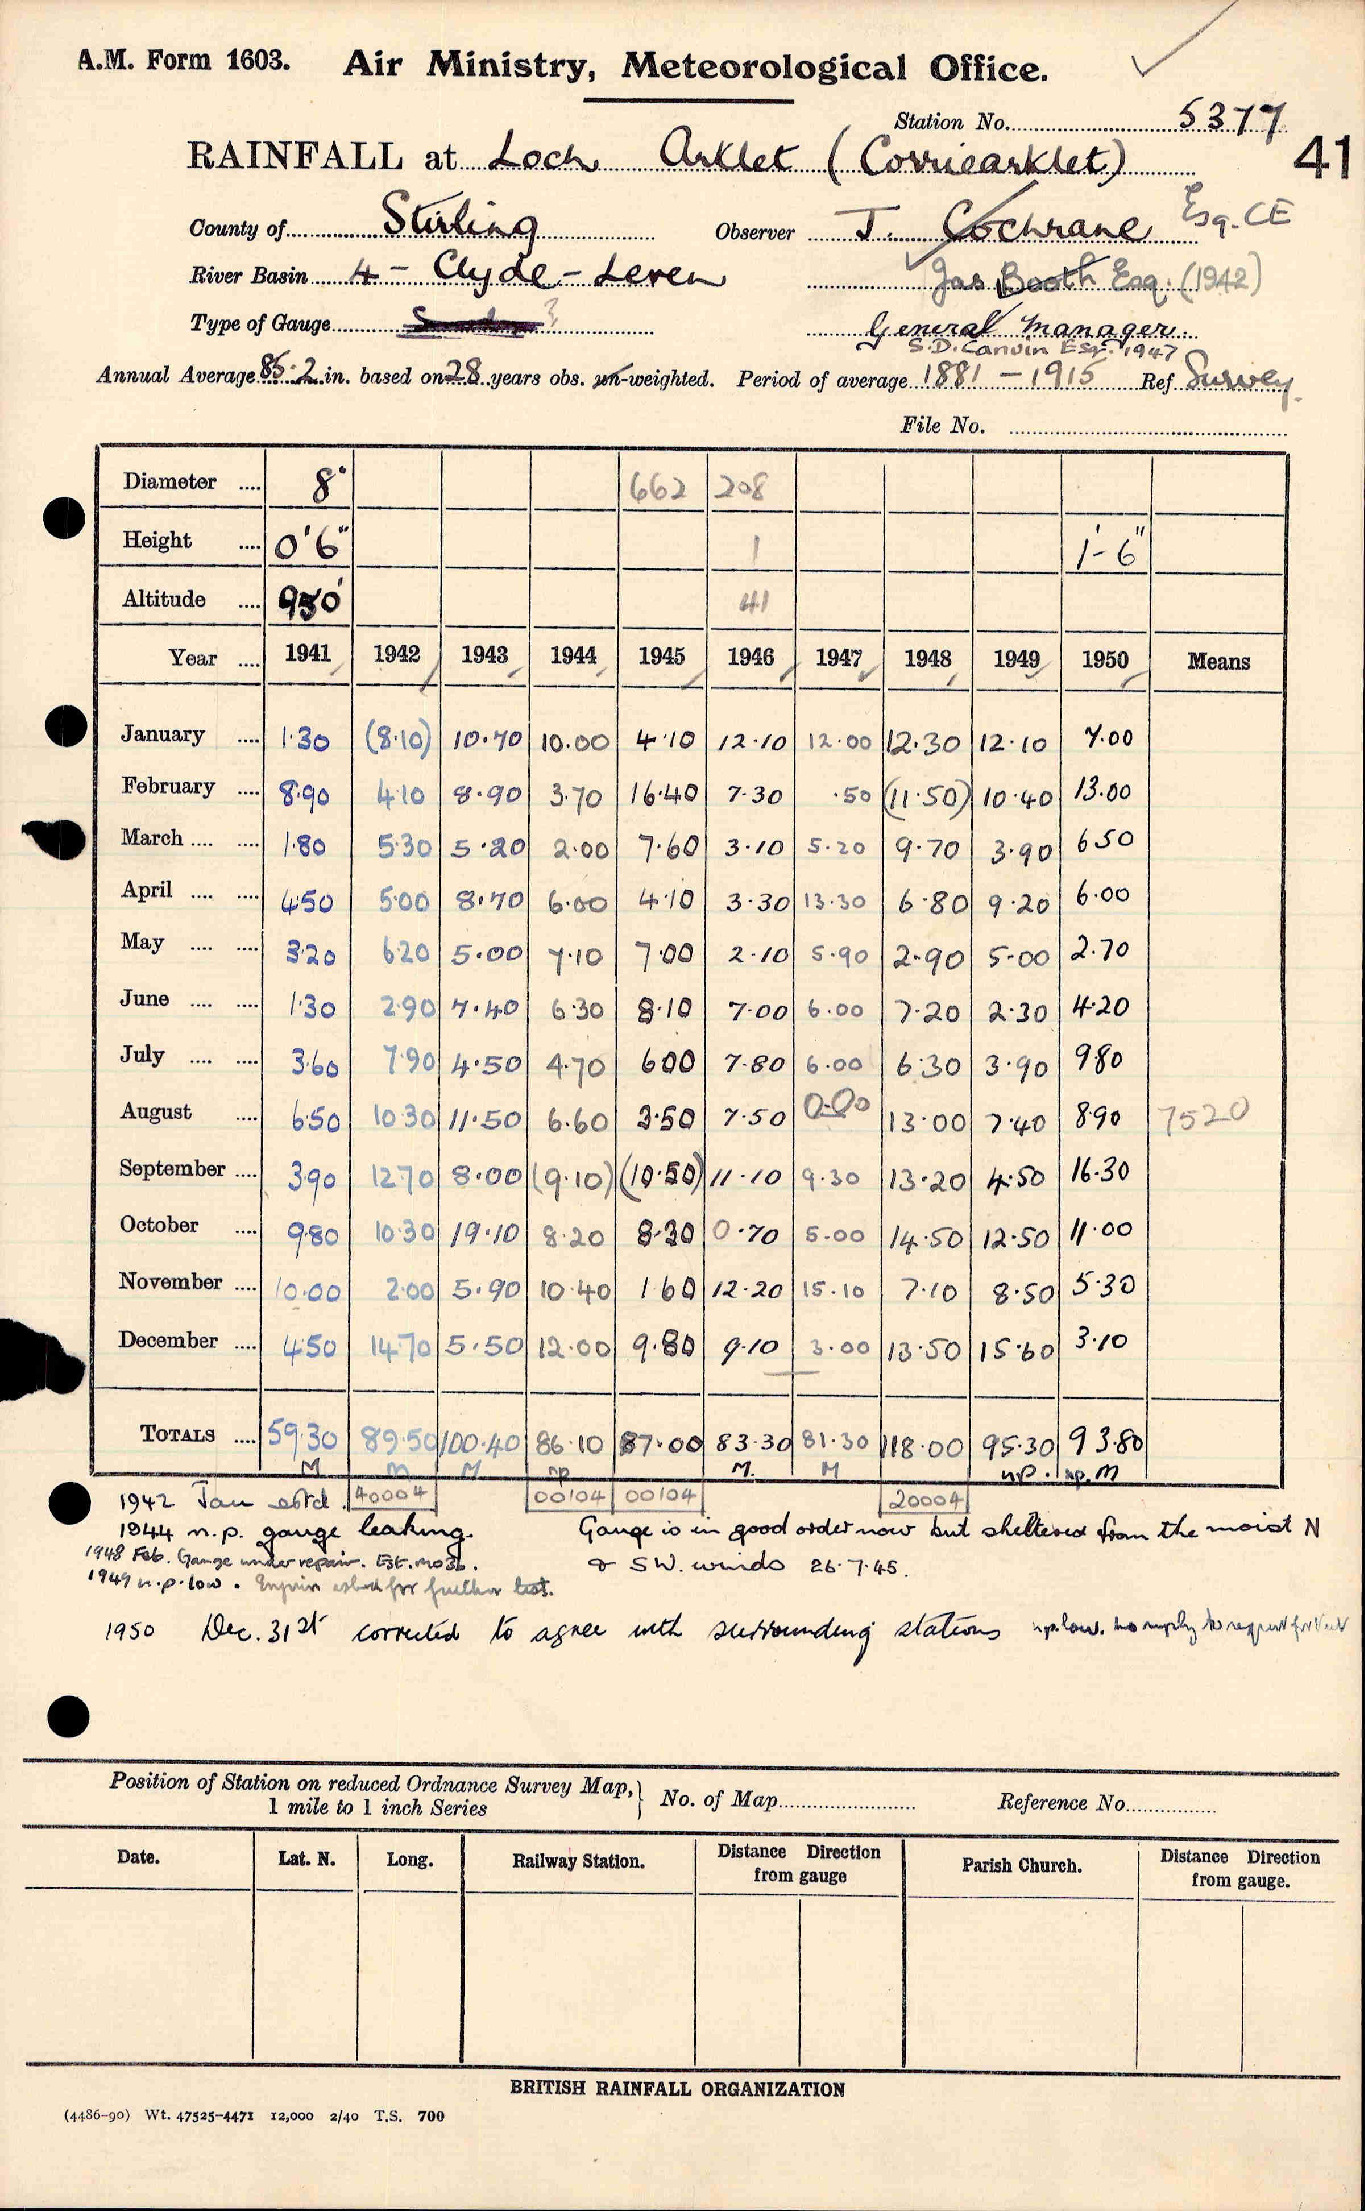 A.M. Form 1603. Air Ministry, Meteorological Office.
Station No. 5377
41
RAINFALL at Loch Arklet (Corriearklet)
County of Stirling Observer J. Cochrane Esq. CE
River Basin 4 - Clyde - Leven Jas Booth Esq. (1942)
Type of Gauge ? General Manager.
S.D. Canvin Esq. 1947
Annual Average 85.2 in. based on 28 years obs. un-weighted. Period of average 1881 - 1915 Ref Survey.
File No.
Diameter .... 8" 662 208
Height .... 0'6" 1 1'-6"
Altitude .... 950' 41
Year .... 1941 1942 1943 1944 1945 1946 1947 1948 1949 1950 Means
January .... 1.30 (8.10) 10.70 10.00 4.10 12.10 12.00 12.30 12.10 7.00
February .... 8.90 4.10 8.90 3.70 16.40 7.30 .50 (11.50) 10.40 13.00
March .... .... 1.80 5.30 5.20 2.00 7.60 3.10 5.20 9.70 3.90 6.50
April .... .... 4.50 5.00 8.70 6.00 4.10 3.30 13.30 6.80 9.20 6.00
May .... .... 3.20 6.20 5.00 7.10 7.00 2.10 5.90 2.90 5.00 2.70
June .... .... 1.30 2.90 7.40 6.30 8.10 7.00 6.00 7.20 2.30 4.20
July .... .... 3.60 7.90 4.50 4.70 6.00 7.80 6.00 6.30 3.90 9.80
August .... 6.50 10.30 11.50 6.60 3.50 7.50 0.00 13.00 7.40 8.90 7520
September .... 3.90 12.70 8.00 (9.10) (10.50) 11.10 9.30 13.20 4.50 16.30
October .... 9.80 10.30 19.10 8.20 8.30 0.70 5.00 14.50 12.50 11.00
November .... 10.00 2.00 5.90 10.40 1.60 12.20 15.10 7.10 8.50 5.30
December .... 4.50 14.70 5.50 12.00 9.80 9.10 3.00 13.50 15.60 3.10
TOTALS .... 59.30 89.50 100.40 86.10 87.00 83.30 81.30 118.00 95.30 93.80
M M M np M. M n.p. np. M
1942 Jan estd. 40004 00104 00104 20004
1944 n.p. gauge leaking. Gauge is in good order now but sheltered from the moist N
1948 Feb. Gauge under repair. Est. mo3b. & SW. winds 26.7.45.
1949 n.p. low. Enquiry asked for further test.
1950 Dec. 31st corrected to agree with surrounding stations n.p. low. no reply to request for test
Position of Station on reduced Ordnance Survey Map, } No. of Map Reference No.
1 mile to 1 inch Series
Date. Lat. N. Long. Railway Station. Distance Direction from gauge Parish Church. Distance Direction from gauge.
BRITISH RAINFALL ORGANIZATION
(4486-90) Wt. 47525-4471 12,000 2/40 T.S. 700